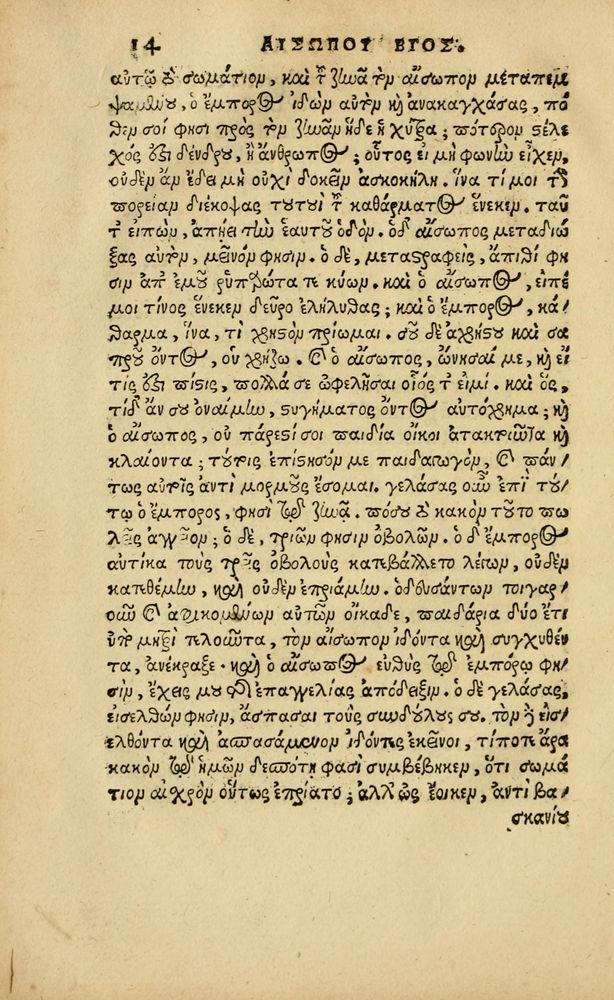 14 ΑΙΣΩΠΟΥ ΒΙΟΣ.
αὐτῷ τὸ σωμάτιον, καὶ τ ζηνᾶ τὸν αἴσωπον μεταπεμ
ψαμένου, ὁ ἔμπορος ἰδὼν αὐτὸν καὶ ἀνακαγχάσας, πό
θεν σοί φησι πρὸς τὸν ζηνᾶν ἥδε ἡ χύτρα; πότερον στέλε
χός ἐστι δένδρου, ἢ ἄνθρωπος; οὗτος εἰ μὴ φωνὴν εἶχεν,
οὐδὲν ἂν ἔδει μὴ οὐχὶ δοκεῖν ἀσκοκήλη. ἵνα τί μοι τὴν
πορείαν διέκοψας τουτουὶ τ καθάρματος ἕνεκεν. ταῦ
τ εἰπὼν, ἀπῄει τὴν ἑαυτοῦ ὁδόν. ὁ δ αἴσωπος μεταδιώ
ξας αὐτὸν, μεῖνόν φησιν. ὁ δὲ, μεταστραφεὶς, ἄπιθί φη
σιν ἀπ ἐμοῦ ῥυπαρώτατε κύων. καὶ ὁ αἴσωπος, εἰπέ
μοι τίνος ἕνεκεν δεῦρο ἐλήλυθας; καὶ ὁ ἔμπορος, κά
θαρμα, ἵνα, τὶ χρηστὸν πρίωμαι. σοῦ δὲ ἀχρήστου καὶ σα
προῦ ὄντος, οὐ χρῄζω. καὶ ὁ αἴσωπος, ὤνησαί με, καὶ εἴ
τίς ἐστι πίστις, πολλά σε ὠφελῆσαι οἷός τ εἰμί. καὶ ὃς,
τί δ ἂν σου ὀναίμην, στυγήματος ὄντος αὐτόχρημα; καὶ
ὁ αἴσωπος, οὐ πάρεστί σοι παιδία οἴκοι ἀτακτοῦντα καὶ
κλαίοντα; τούτοις ἐπίστησόν με παιδαγωγὸν, καὶ πάν
τως αὐτοῖς ἀντὶ μορμοῦς ἔσομαι. γελάσας οὖν ἐπὶ τού
τῳ ὁ ἔμπορος, φησὶ τῷ ζηνᾷ. πόσου τὸ κακὸν τοῦτο πω
λεῖς ἀγγεῖον; ὁ δὲ, τριῶν φησιν ὀβολῶν. ὁ δ ἔμπορος
αὐτίκα τοὺς τρεῖς ὀβολοὺς κατεβάλλετο λέγων, οὐδὲν
κατεθέμην, καὶ οὐδὲν ἐπριάμην. ὁδευσάντων τοιγαρ
οῦν καὶ ἀφικομένων αὐτῶν οἴκαδε, παιδάρια δύο ἔτι
ὑπὸ μητρὶ τελοῦντα, τὸν αἴσωπον ἰδόντα καὶ συγχυθέν
τα, ἀνέκραξε. καὶ ὁ αἴσωπος εὐθὺς τῷ ἐμπόρῳ φη
σὶν, ἔχεις μου τῆς ἐπαγγελίας ἀπόδειξιν. ὁ δὲ γελάσας,
εἰσελθών φησιν, ἄσπασαι τοὺς συνδούλους σου. τὸν δ εἰσ
ελθόντα καὶ ἀσπασάμενον ἰδόντες ἐκεῖνοι, τί ποτε ἄρα
κακὸν τῷ ἡμῶν δεσπότῃ φασὶ συμβέβηκεν, ὅτι σωμά
τιον αἰσχρὸν οὕτως ἐπρίατο; ἀλλ ὡς ἔοικεν, ἀντὶ βα
σκανίου